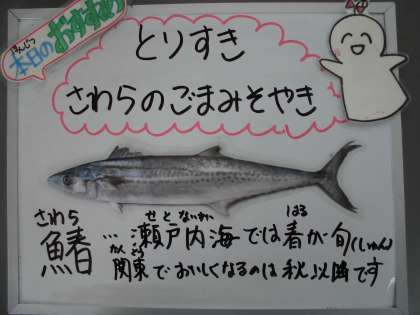 ほんじつ
本日のおすすめ
とりすき
さわらのごまみそやき
さわら
鰆…瀬戸内海では春が旬(しゅん)
せとないかい
はる
かんとう
関東でおいしくなるのは秋以降です